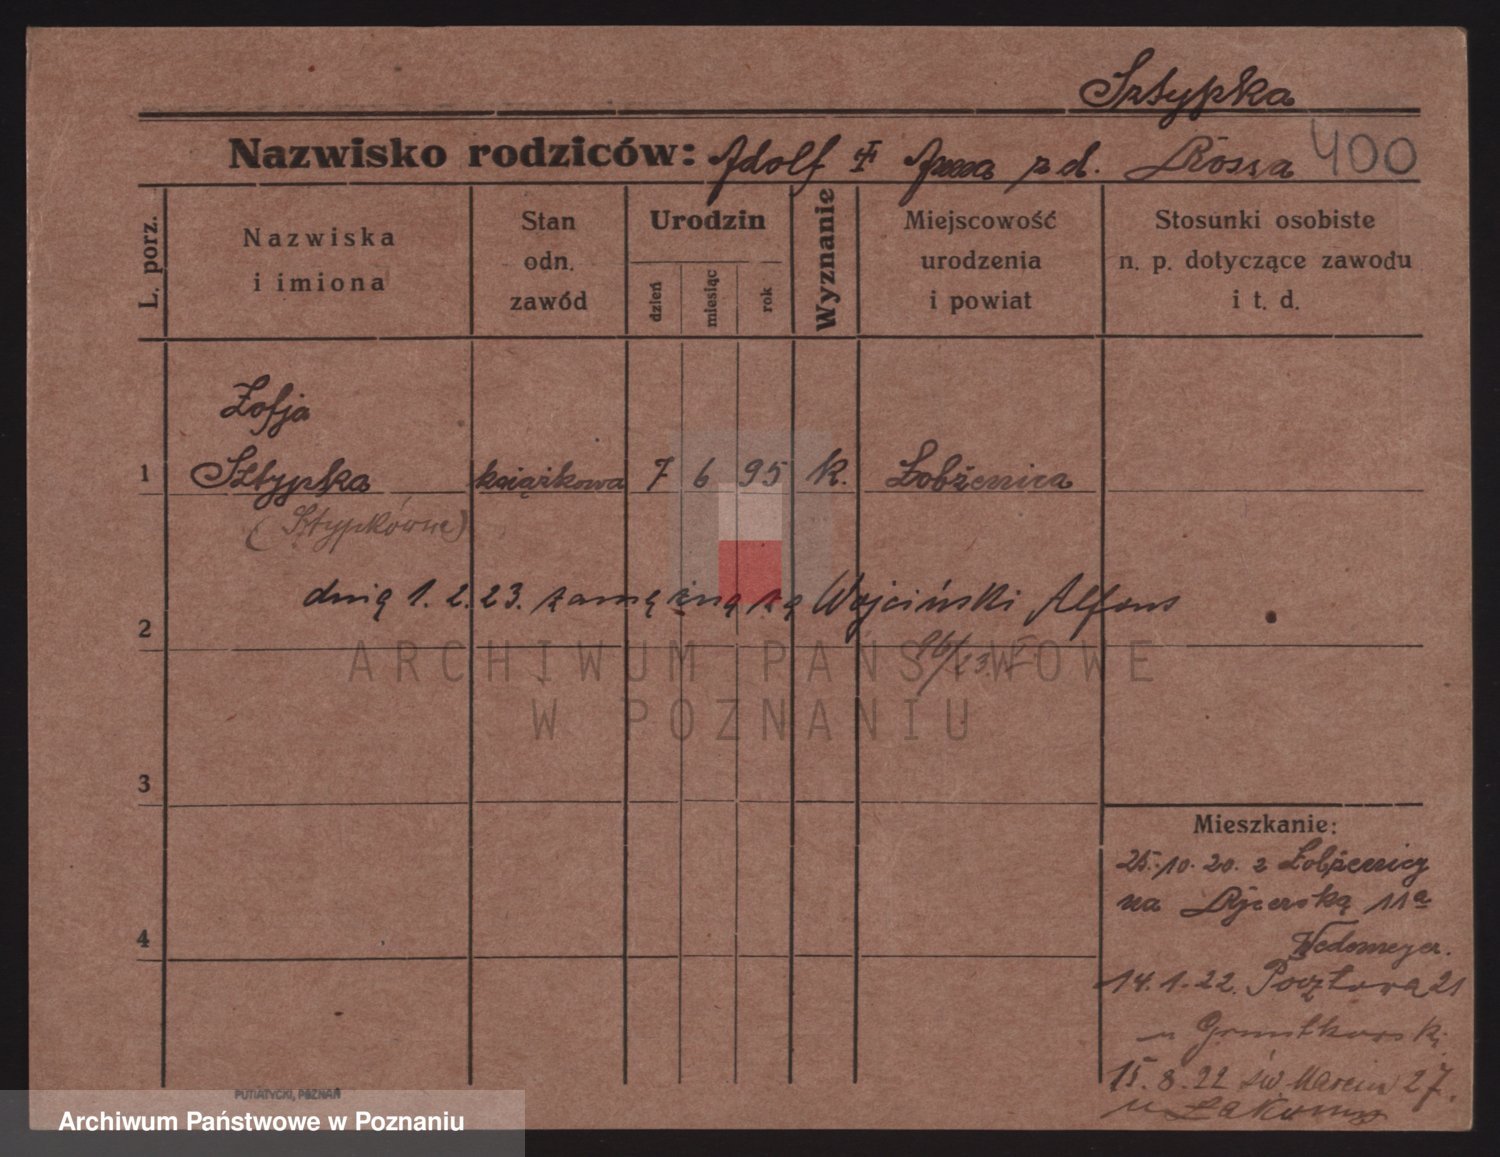 Sztypka
Nazwisko rodziców: Adolf i Anna z d. Rossa 400
L. porz.
Nazwiska
i imiona
Stan
odn.
zawód
Urodzin
dzień
miesiąc
rok
Wyznanie
Miejscowość
urodzenia
i powiat
Stosunki osobiste
n. p. dotyczące zawodu
i t. d.
Zofja
1 Sztypka książkowa 7 6 95 k. Łobżenica
(Sztypkówna)
dnią 1. 2. 23. zamężną zą Wojciński Alfons
2
ARCHIWUM PAŃSTWOWE
W POZNANIU
3
Mieszkanie:
25.10.20. z Łobżenicy
na Rycerską 11a
4
Wedemeyer.
14.1.22. Pocztowa 21
u
15.8.22 św Marcin 27.
u
PUTIATYCKI, POZNAŃ
Archiwum Państwowe w Poznaniu